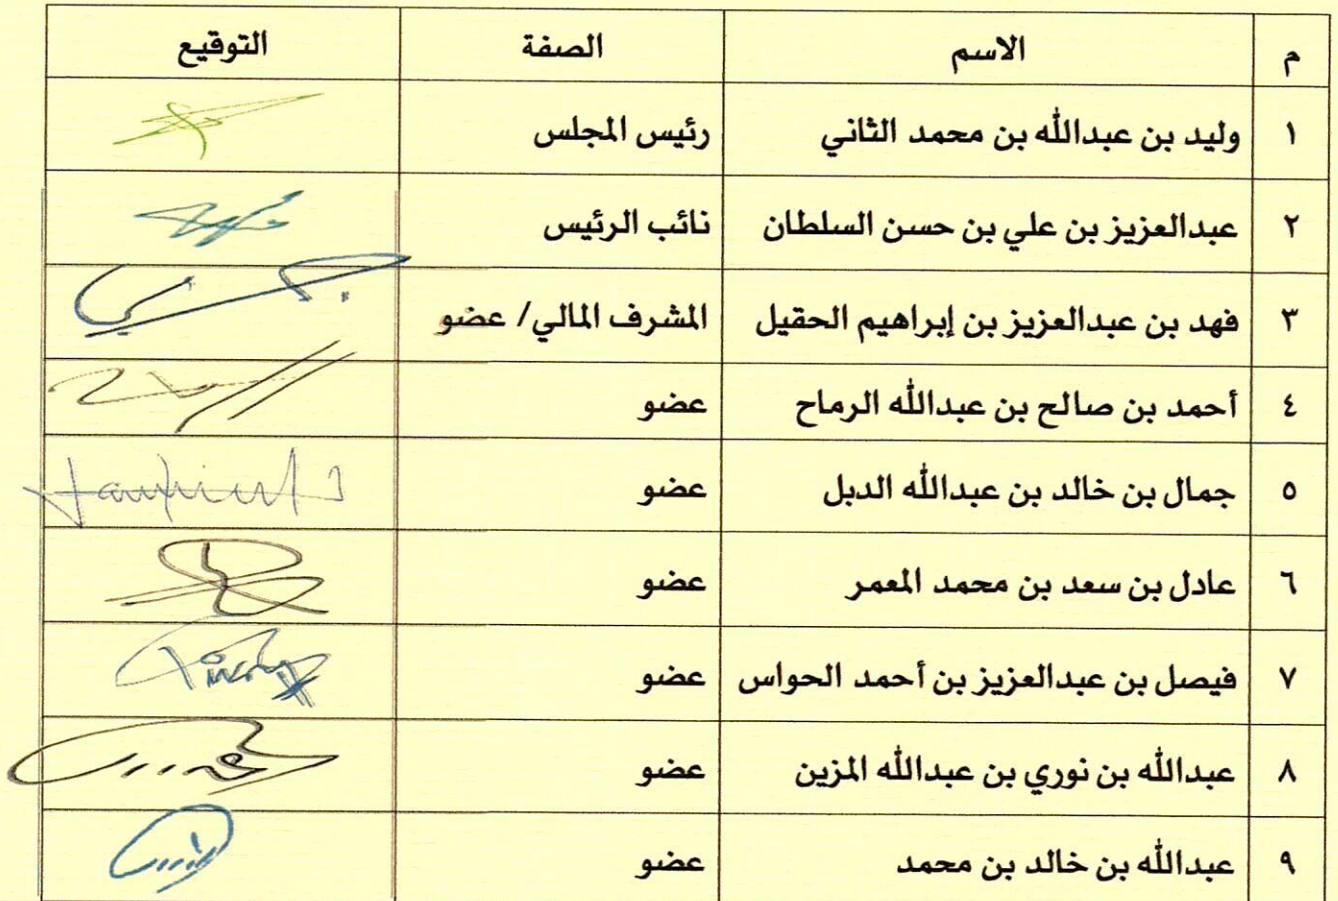 م الاسم الصفة التوقيع
١ وليد بن عبدالله بن محمد الثاني رئيس المجلس
٢ عبدالعزيز بن علي بن حسن السلطان نائب الرئيس
٣ فهد بن عبدالعزيز بن إبراهيم الحقيل المشرف المالي/ عضو
٤ أحمد بن صالح بن عبدالله الرماح عضو
٥ جمال بن خالد بن عبدالله الدبل عضو
٦ عادل بن سعد بن محمد المعمر عضو
٧ فيصل بن عبدالعزيز بن أحمد الحواس عضو
٨ عبدالله بن نوري بن عبدالله المزين عضو
٩ عبدالله بن خالد بن محمد عضو